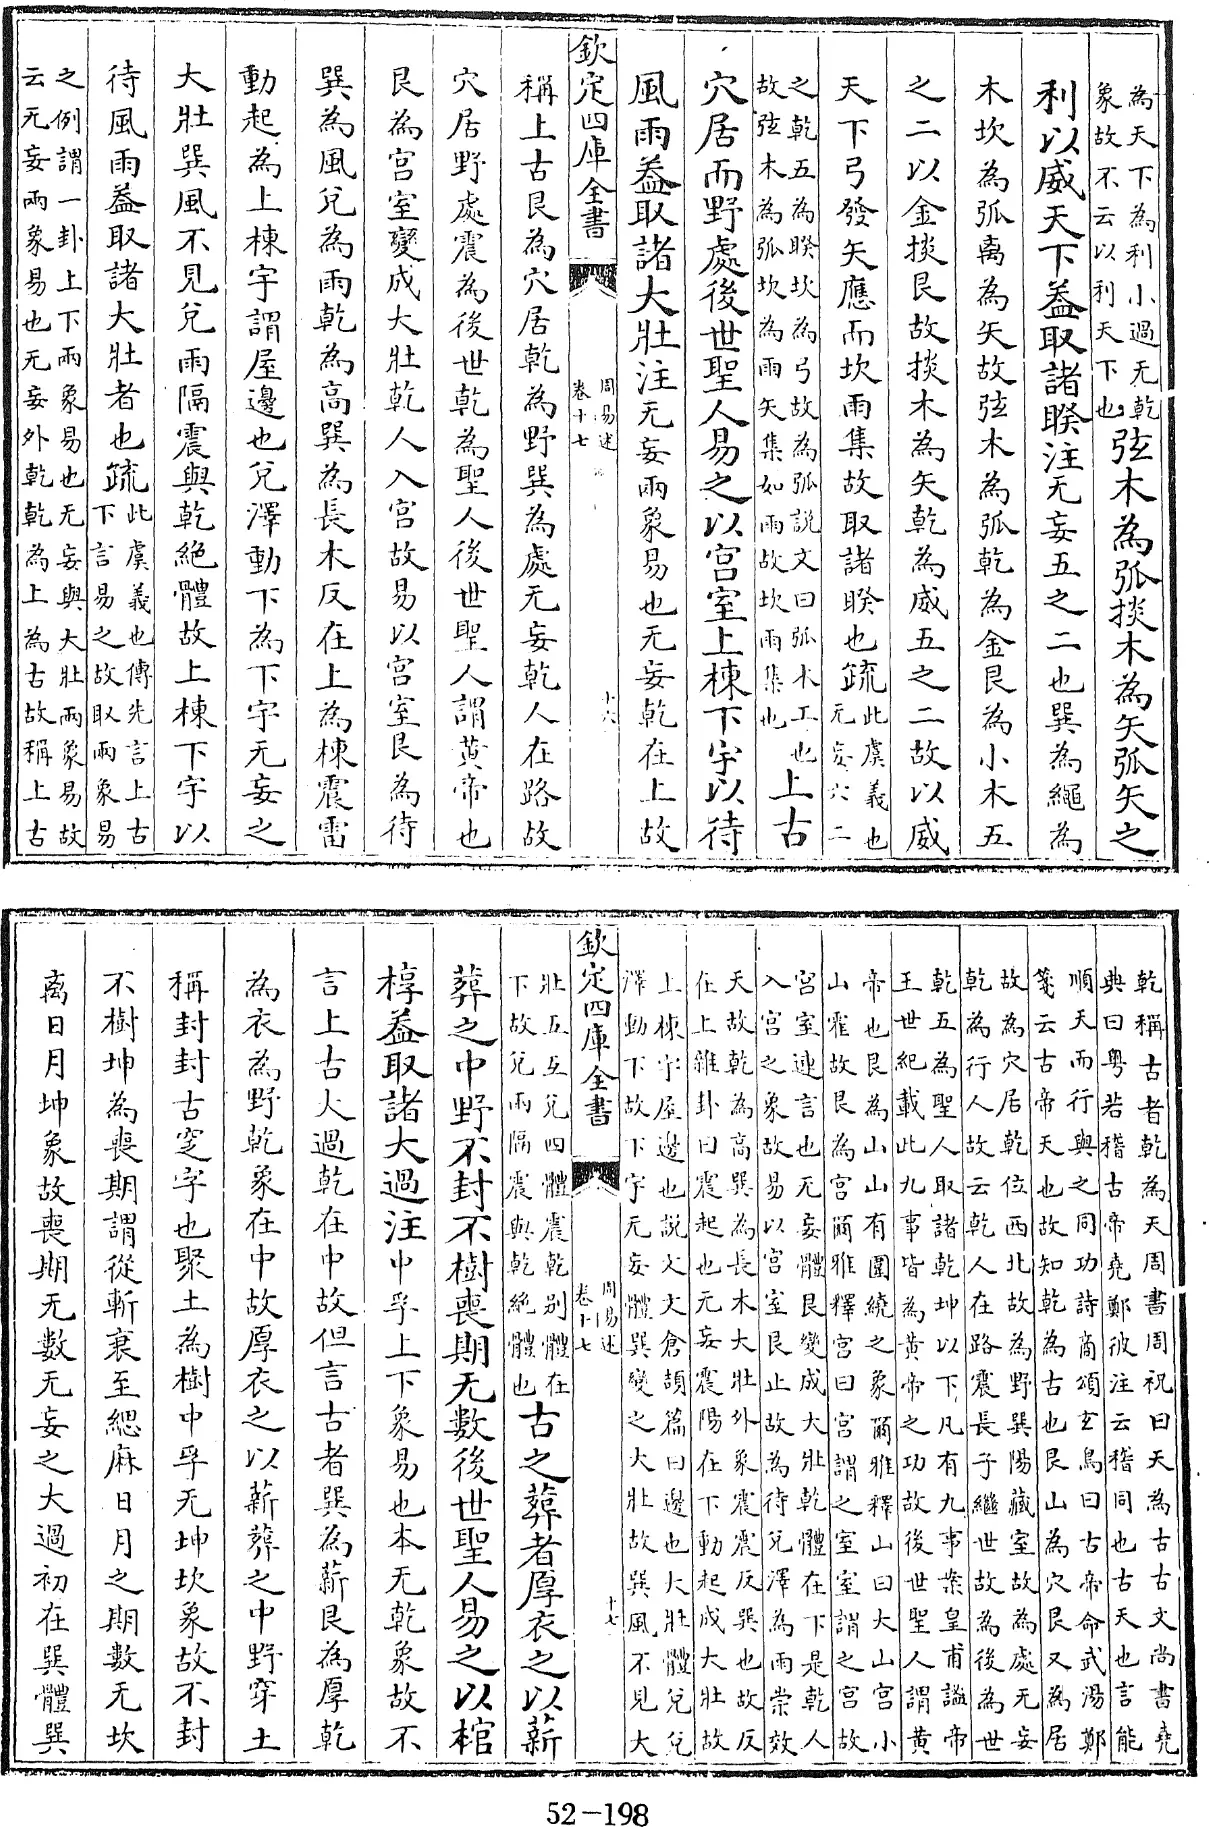 為天下為利小過无乾
象故不云以利天下也弦木為弧掞木為矢弧矢之
利以威天下葢取諸睽注无妄五之二也巽為繩為
木坎為弧离為矢故弦木為弧乾為金艮為小木五
之二以金掞艮故掞木為矢乾為威五之二故以威
天下弓發矢應而坎雨集故取諸睽也疏此虞義也
无妄六二
之乾五為睽坎為弓故為弧說文曰弧木工也
故弦木為弧坎為雨矢集如雨故坎雨集也上古
穴居而野處後世聖人易之以宫室上棟下宇以待
風雨葢取諸大壯注无妄兩象易也无妄乾在上故
欽定四庫全書
周易述
卷十七
十六
稱上古艮為穴居乾為野巽為處无妄乾人在路故
穴居野處震為後世乾為聖人後世聖人謂黄帝也
艮為宫室變成大壯乾人入宫故易以宫室艮為待
巽為風兌為雨乾為高巽為長木反在上為棟震雷
動起為上棟宇謂屋邊也兌澤動下為下宇无妄之
大壯巽風不見兌雨隔震與乾絕體故上棟下宇以
待風雨葢取諸大壯者也疏此虞義也傳先言上古
下言易之故取兩象易
之例謂一卦上下兩象易也无妄與大壯兩象易故
云无妄兩象易也无妄外乾乾為上為古故稱上古
乾稱古者乾為天周書周祝曰天為古古文尚書堯
典曰粤若稽古帝堯鄭彼注云稽同也古天也言能
順天而行與之同功詩商頌玄鳥曰古帝命武湯鄭
箋云古帝天也故知乾為古也艮山為穴艮又為居
故為穴居乾位西北故為野巽陽藏室故為處无妄
乾為行人故云乾人在路震長子繼世故為後為世
乾五為聖人取諸乾坤以下凡有九事案皇甫謐帝
王世紀載此九事皆為黄帝之功故後世聖人謂黄
帝也艮為山山有圍繞之象爾雅釋山曰大山宫小
山霍故艮為宫爾雅釋宫曰宫謂之室室謂之宫故
宫室連言也无妄體艮變成大壯乾體在下是乾人
入宫之象故易以宫室艮止故為待兌澤為雨崇效
天故乾為高巽為長木大壯外象震震反巽也故反
在上雜卦曰震起也无妄震陽在下動起成大壯故
上棟宇屋邊也說文文倉頡篇曰邊也大壯體兌兌
澤動下故下宇无妄體巽變之大壯故巽風不見大
欽定四庫全書
周易述
卷十七
十七
壯五互兌四體震乾别體在
下故兌雨隔震與乾絕體也古之葬者厚衣之以薪
葬之中野不封不樹喪期无數後世聖人易之以棺
椁葢取諸大過注中孚上下象易也本无乾象故不
言上古大過乾在中故但言古者巽為薪艮為厚乾
為衣為野乾象在中故厚衣之以薪葬之中野穿土
稱封封古窆字也聚土為樹中孚无坤坎象故不封
不樹坤為喪期謂從斬衰至緦麻日月之期數无坎
离日月坤象故喪期无數无妄之大過初在巽體巽
52-198